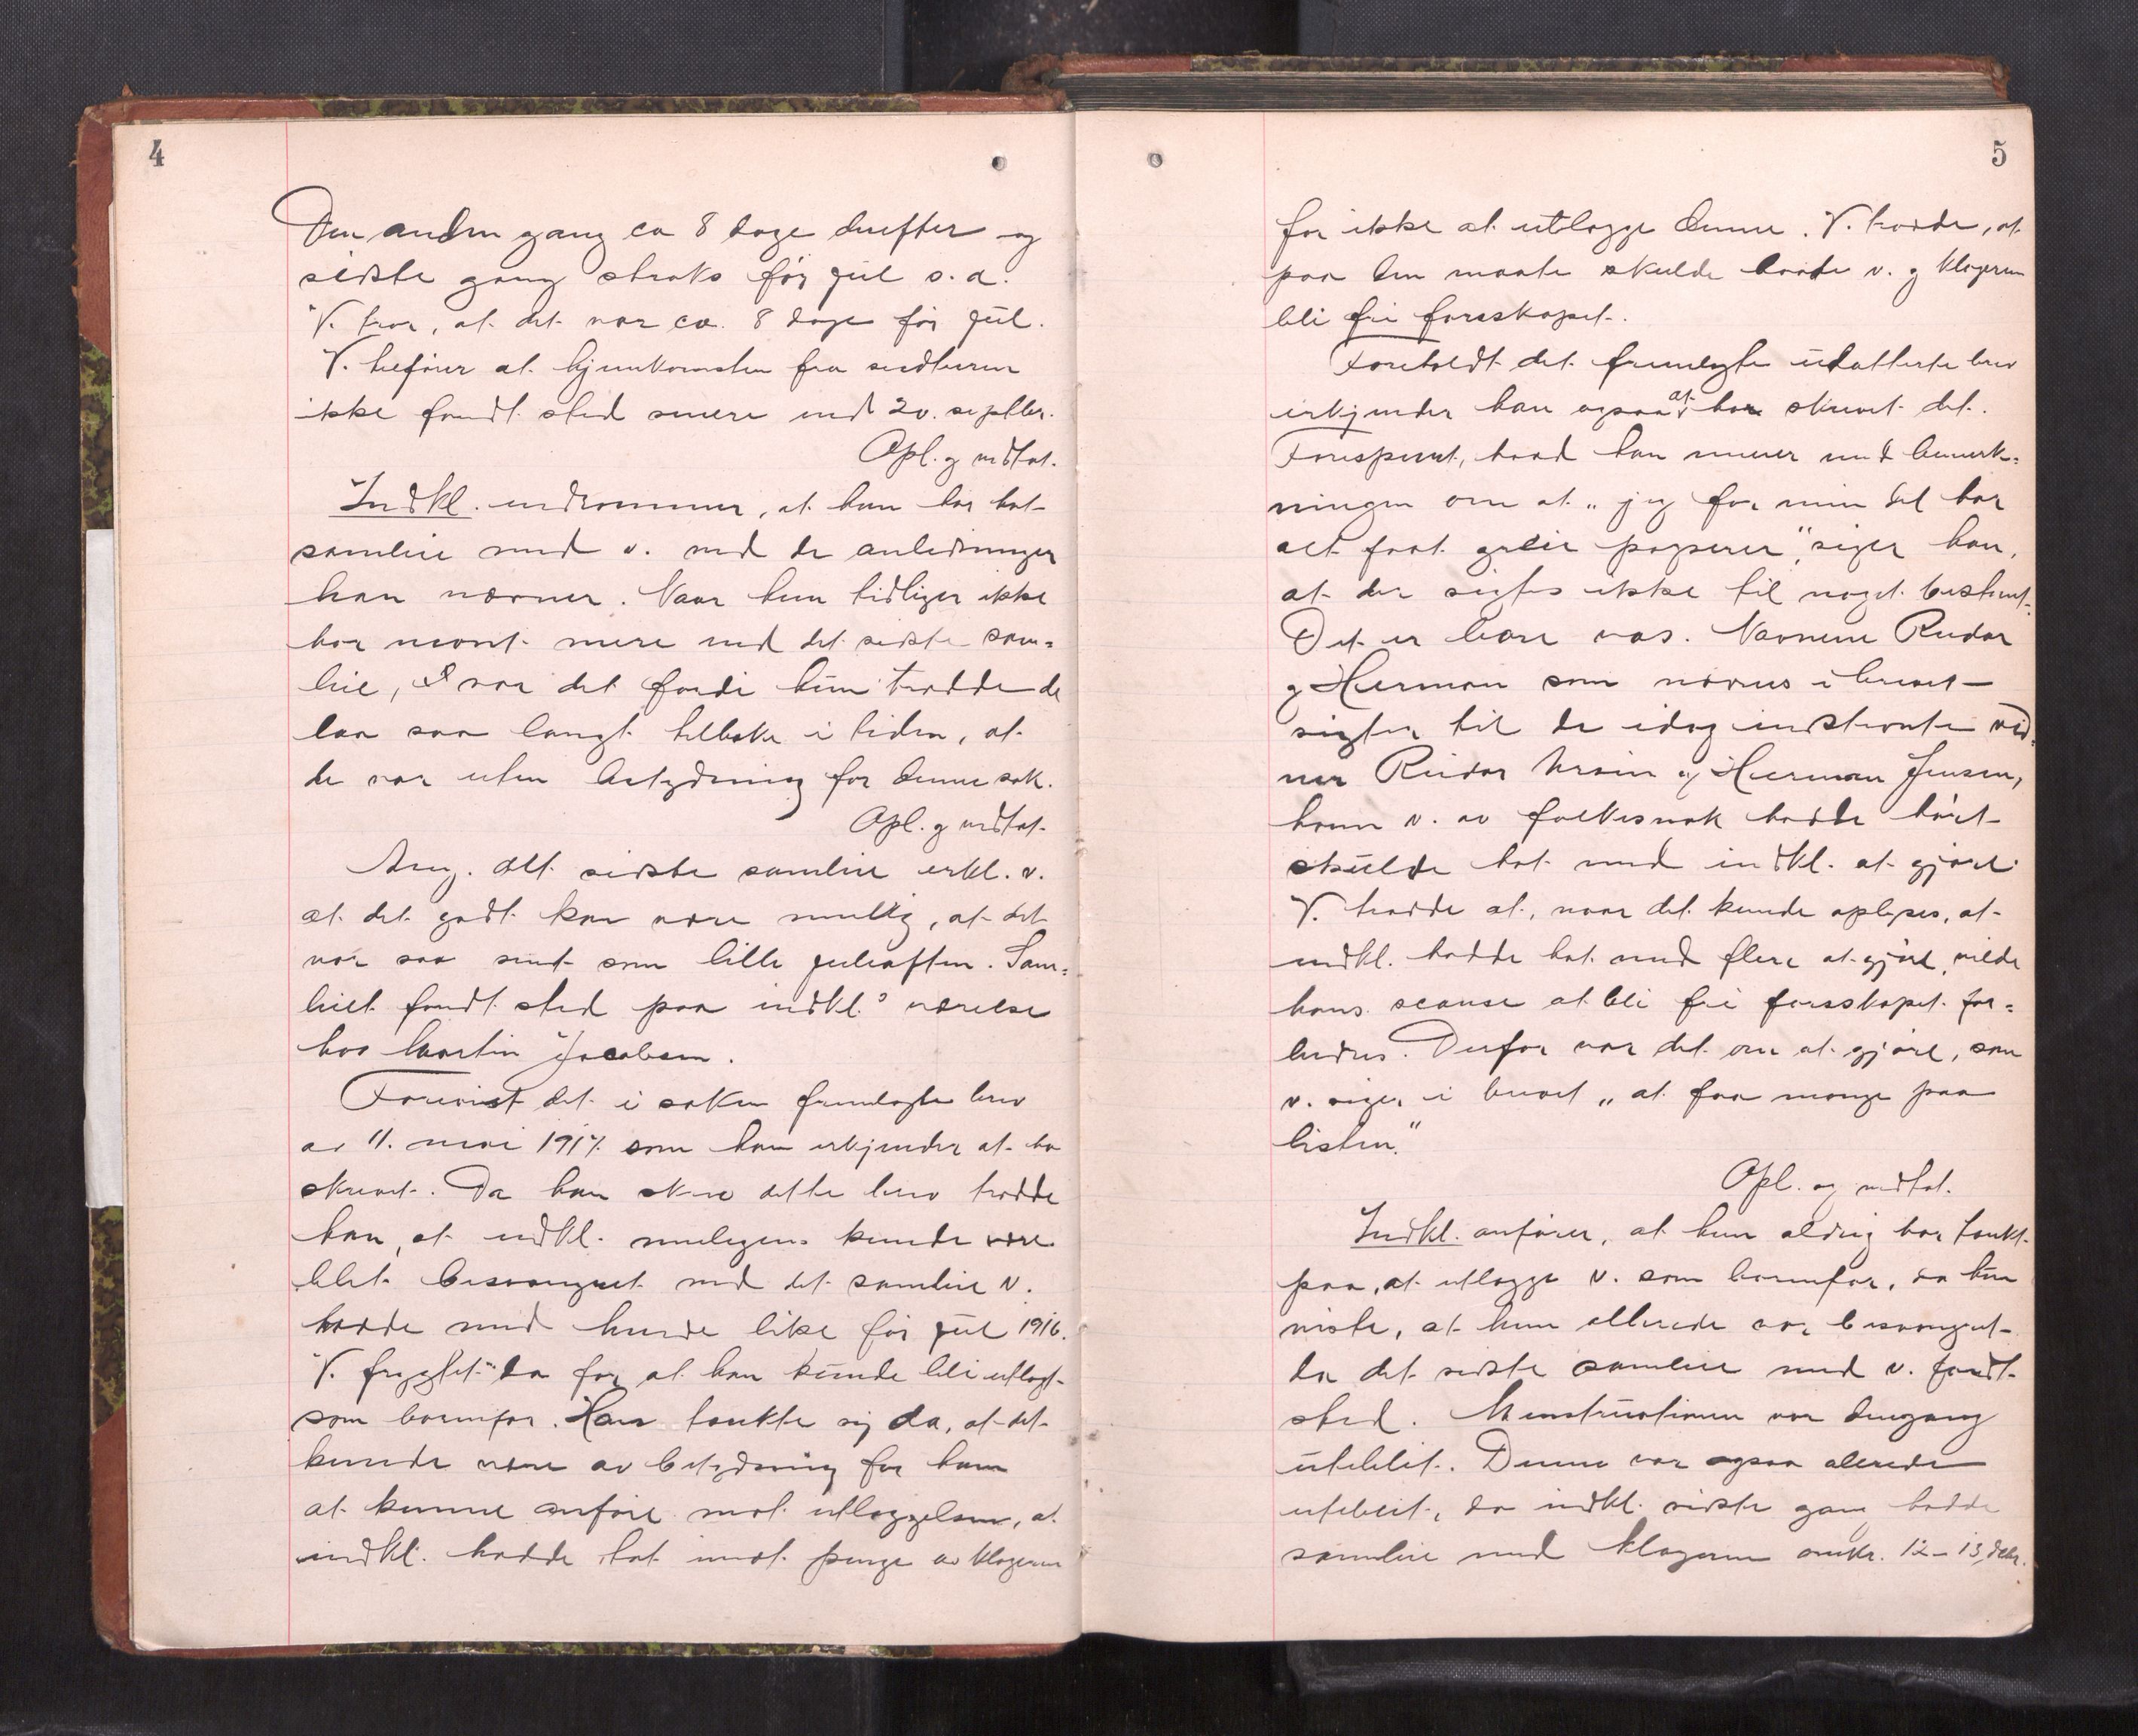 4
Den anden gang ca 8 dage derefter og
sidste gang straks før jul s.a.
V. tror, at det var ca. 8 dage før jul.
V. tilføier at hjemkomsten fra sildturen
ikke fandt sted senere end 20. septbr.
Opl. og vedtat.
Indkl. indrømmer, at hun har hat
samleie med v. ved de anledninger
han nævner. Naar hun tidliger ikke
har nævnt mere end det sidste sam=
leie, var det fordi hun trodde de
laa saa langt tilbake i tiden, at
de var uten betydning for denne sak.
Opl. og vedtat.
Ang. det sidste samleie erkl. v.
at det godt kan være mulig, at det
var saa sent som lille juleaften. Sam=
leiet fandt sted paa indkl.s værelse
hos Martin Jacobsen.
Forevist det i saken fremlagte brev
av 11. mai 1917. som han erkjender at ha
skrevet. Da han skrev dette brev trodde
han, at indkl. muligens kunde være
blit besvangret ved det samleie v.
hadde med hende like før jul 1916.
V. frygtet da for at han kunde bli utlagt
som barnefar. Han tænkte sig da, at det
kunde være av betydning for ham
at kunne anføre mot utlæggelsen, at
indkl. hadde tat imot penge av klageren
5
for ikke at utlægge denne. V. trodde, at
paa den maate skulde baade v. og klageren
bli fri farsskapet.
Foreholdt det fremlagte udatterte brev
erkjender han ogsaa at ha skrevet det.
Forespurt, hvad han mener med bemerk=
ningen om at „jeg for min del har
alt faat greie paperer", siger han,
at der sigtes ikke til noget bestemt.
Det er bare vas. Navnene Reidar
og Herman som nævnes i brevet
sigter til de idag indstevnte vid=
ner Reidar Arsin og Herman Jensen,
hvem v. av folkesnak hadde hørt
skulde hat med indkl. at gjøre.
V. trodde at, naar det kunde oplyses, at
indkl. hadde hat med flere at gjøre, vilde
hans scanse at bli fri farsskapet for=
bedres. Derfor var det om at gjøre, som
v. siger i brevet „at faa mange paa
listen."
Opl. og vedtat.
Indkl. anfører, at hun aldrig har tænkt
paa, at utlægge v. som barnefar, da hun
visste, at hun allerede var besvangret
da det sidste samleie med v. fandt
sted. Menstruationen var dengang
uteblit. Denne var ogsaa allerede
uteblit, da indkl. sidste gang hadde
samleie med klageren omkr. 12–13 debr.